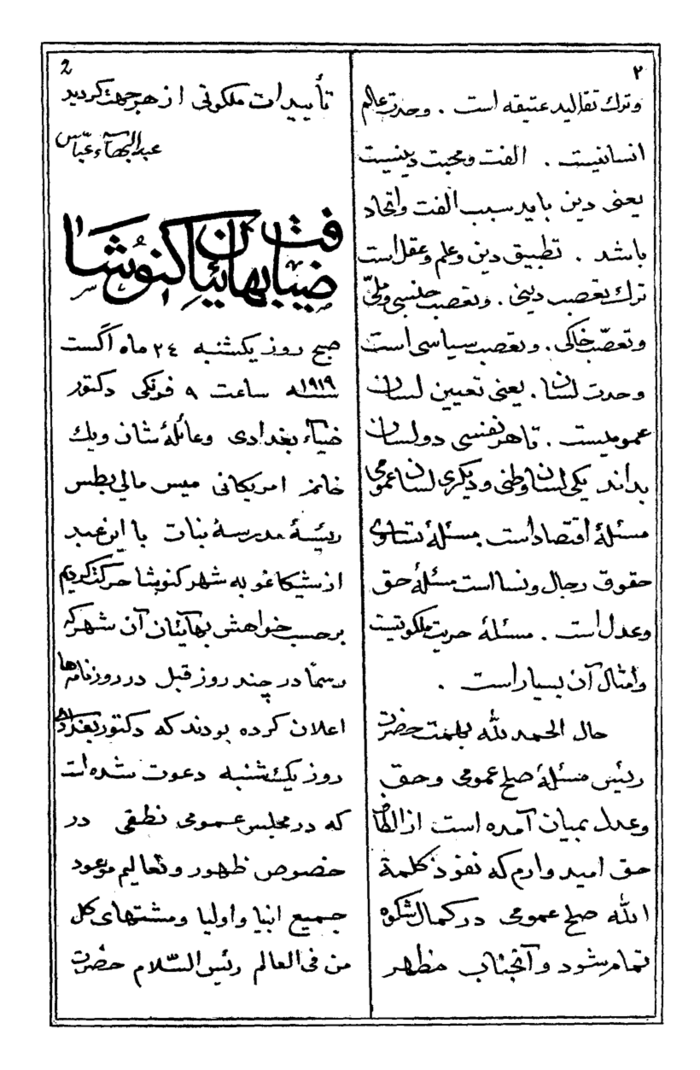 ۲
وترك تقاليد عتيقه است . وحدت عالم
انسانيست . الفت ومحبت دينيست
يعنى دين بايد سبب الفت واتحاد
باشد . تطبيق دين وعلم وعقل است
ترك تعصب دينى . وتعصب جنسى وملّى
وتعصّب خاكى . وتعصب سياسى است
وحدت لسان . يعنى تعيين لسان
عموميست . تا هر نفسى دو لسان
بداند يكى لسان وطنى و ديگرى لسان عمومى
مسئلهٔ اقتصاد است . مسئلهٔ تساوى
حقوق رجال ونسا است مسئلهٔ حق
وعدل است . مسئلهٔ حريت ملكوتيست
وامثال آن بسيار است .
حال الحمد لله بهمت حضرت
رئيس مسئلهٔ صلح عمومى وحق
وعدل بميان آمده است از الطاف
حق اميد وارم كه نفوذ كلمة
الله صلح عمومى در كمال شكوه
تمام شود و آنجناب مظهر
2
تأييدات ملكوتى از هر جهت گرديد
عبدالبهآء عبّاس
ضيافت بهائيان كنوشا
صبح روز يكشنبه ٢٤ ماه اگست
سنه ١٩١٩ ساعت ٩ فرنگى دكتور
ضياء بغدادى وعائلهٔ شان ويك
خانم امريكانى ميس مالى بطس
رئيسهٔ مدرسهٔ بنات با اين عبد
از شيكاغو به شهر كنوشا حركت كرديم
برحسب خواهش بهائيان آن شهر كه
رسمًا در چند روز قبل در روزنامه ها
اعلان كرده بودند كه دكتور بغدادى
روز يكشنبه دعوت شده است
كه در مجلس عمومى نطقى در
خصوص ظهور وتعاليم موعود
جميع انبيا واوليا ومشتهاى كل
من فى العالم رئيس السّلام حضرت